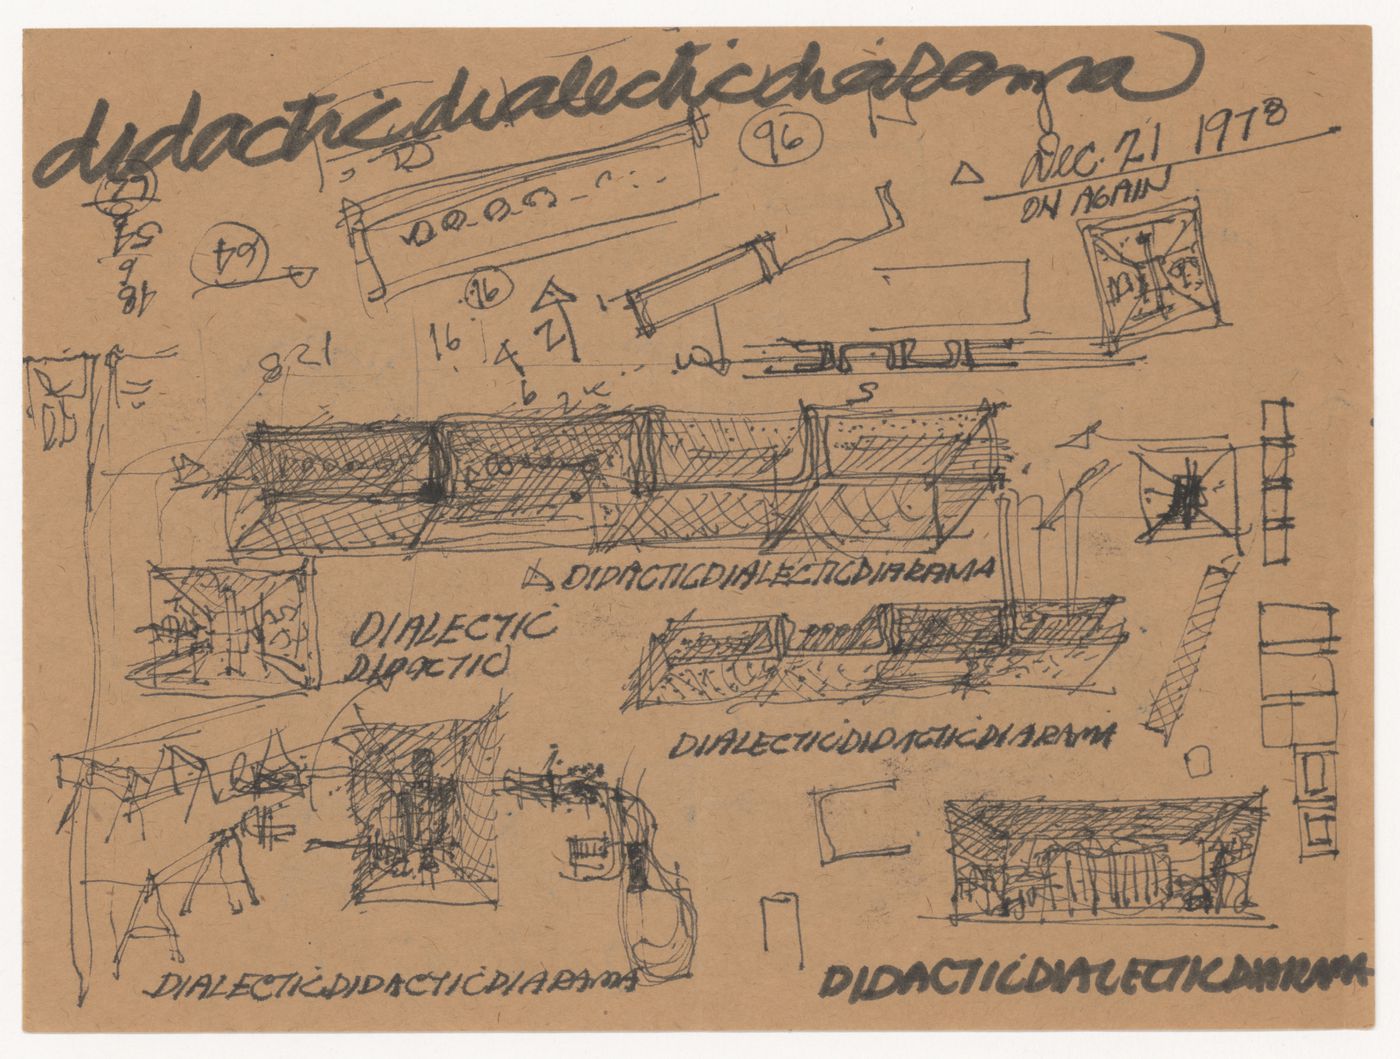 didacticdialecticdiarama
96
Dec. 21 1978
ON AGAIN
64
16
8 21
16
4
2
6
S
DIDACTICDIALECTICDIARAMA
DIALECTIC
DIDACTIC
DIALECTICDIDACTICDIARAMA
DIALECTICDIDACTICDIARAMA
DIDACTICDIALECTICDIARAMA